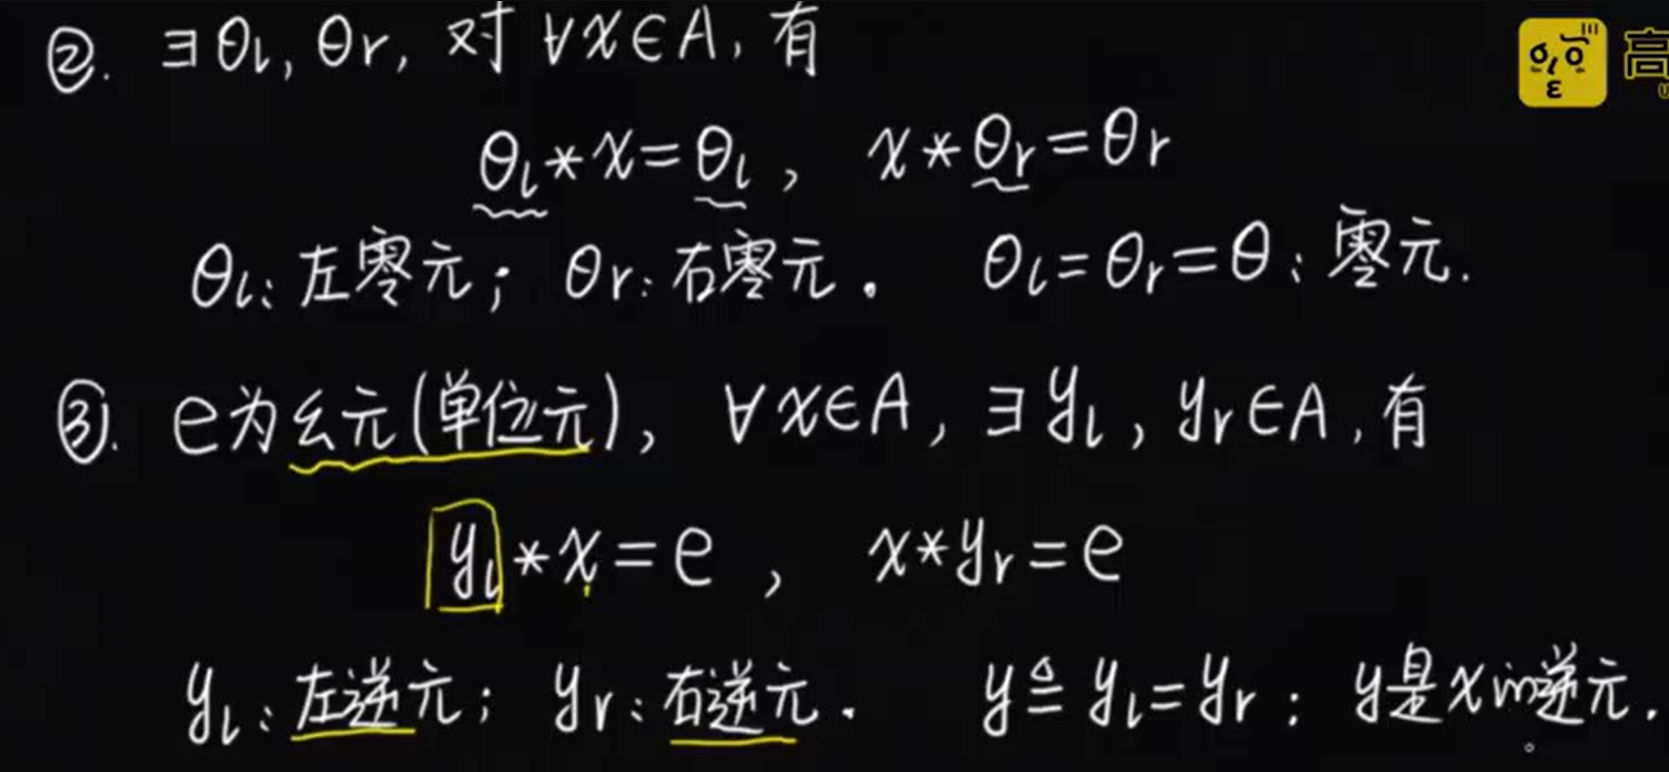 ②. ∃θl, θr, 对 ∀x∈A, 有
高
θl*x=θl, x*θr=θr
θl: 左零元; θr: 右零元. θl=θr=θ: 零元.
③. e为幺元(单位元), ∀x∈A, ∃yl, yr∈A, 有
yl*x=e, x*yr=e
yl: 左逆元; yr: 右逆元. y≜yl=yr: y是x的逆元.